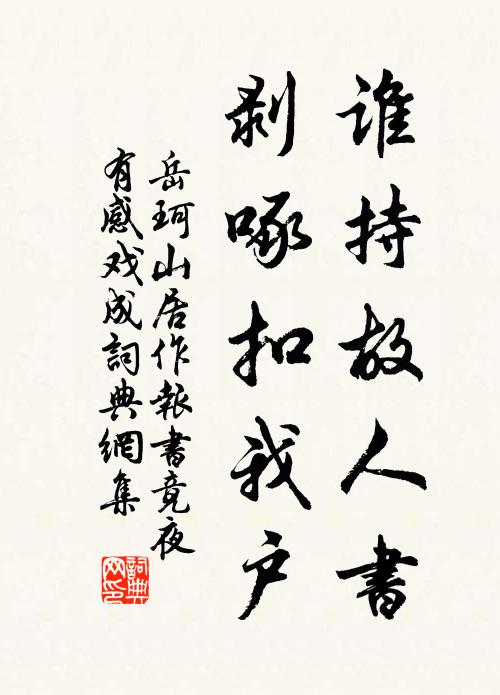 谁持故人書
剥啄扣我户
岳珂山居作報書竟夜
有感戏成詞典網集
詞典
网印